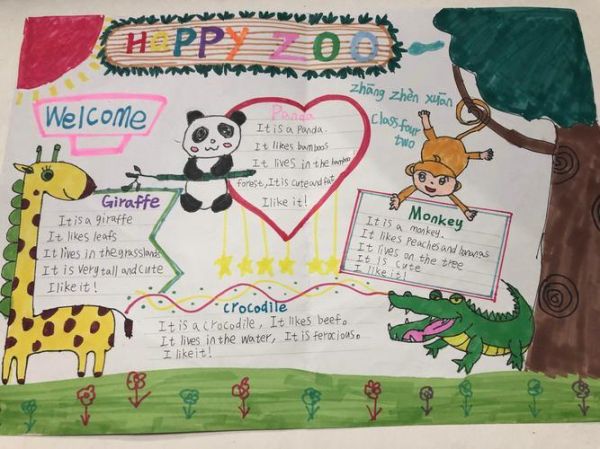 HAPPY ZOO
Welcome
zhāng zhèn xuān
Class four
two
Panda
It is a Panda.
It likes bamboos
It lives in the bamboo
forest, It is cute and fat
I like it!
Giraffe
It is a giraffe
It likes leafs
It lives in the grasslands
It is Very tall and cute
I like it!
Monkey
It is a monkey.
It likes Peaches and bananas
It lives on the tree
It is cute
I like it!
Crocodile
It is a crocodile, It likes beef。
It lives in the water, It is ferocious。
I like it!